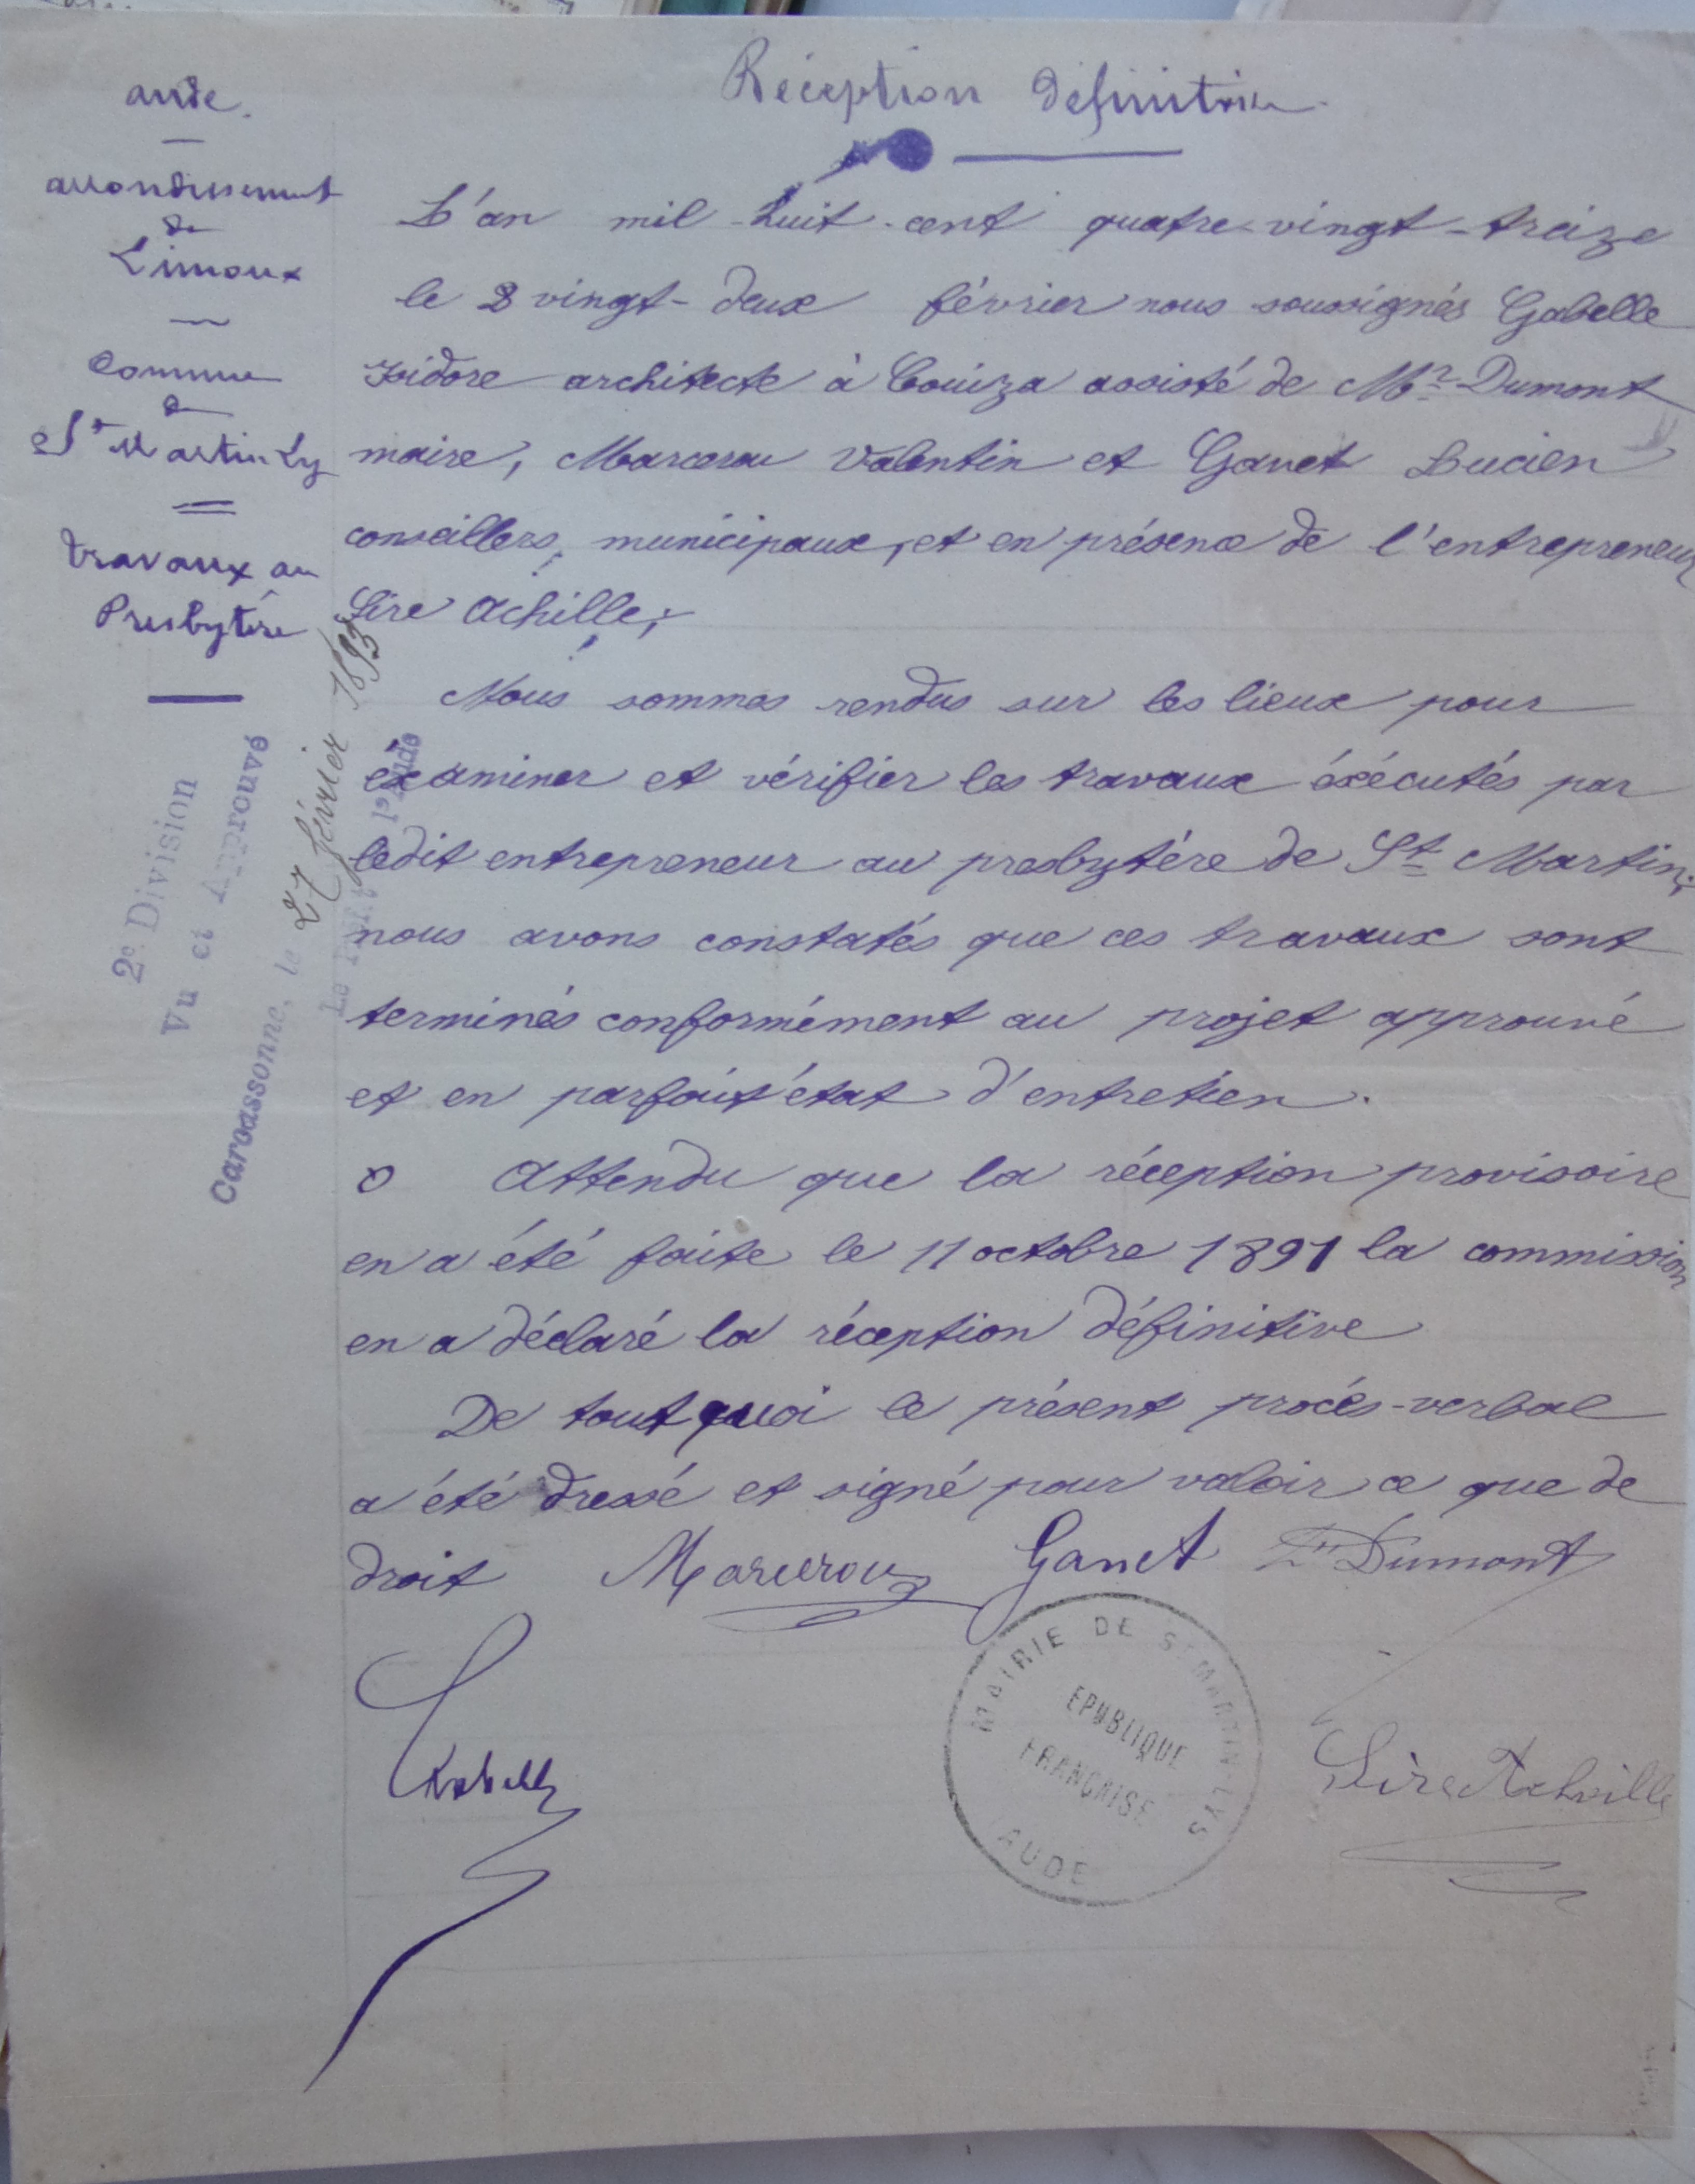 Réception définitive
aude.
arrondissement
de
Limoux
Commune
de
St Martin Lys
Travaux au
Presbytère
2e Division
Vu et Approuvé
Carcassonne, le 27 février 1893
Le Préfet de l'Aude
L'an mil-huit-cent quatre-vingt-treize
le vingt-deux février nous soussignés Gabelle
Isidore architecte à Couiza assisté de Mr Dumont
maire, Marcerou Valentin et Ganet Lucien
conseillers, municipaux, et en présence de l'entrepreneur
Sire Achille,
Nous sommes rendus sur les lieux pour
éxaminer et vérifier les travaux éxécutés par
ledit entrepreneur au presbytére de St Martin;
nous avons constatés que ces travaux sont
terminés conformément au projet approuvé
et en parfait état d'entretien.
Attendu que la réception provisoire
en a été faite le 11 octobre 1891 la commission
en a déclaré la réception définitive
De tout quoi le présent procés-verbal
a été dressé et signé pour valoir ce que de
droit Marcerou Ganet Dumont
Gabelle
MAIRIE DE ST MARTIN-LYS
EPUBLIQUE
FRANÇAISE
AUDE
Sire Achille